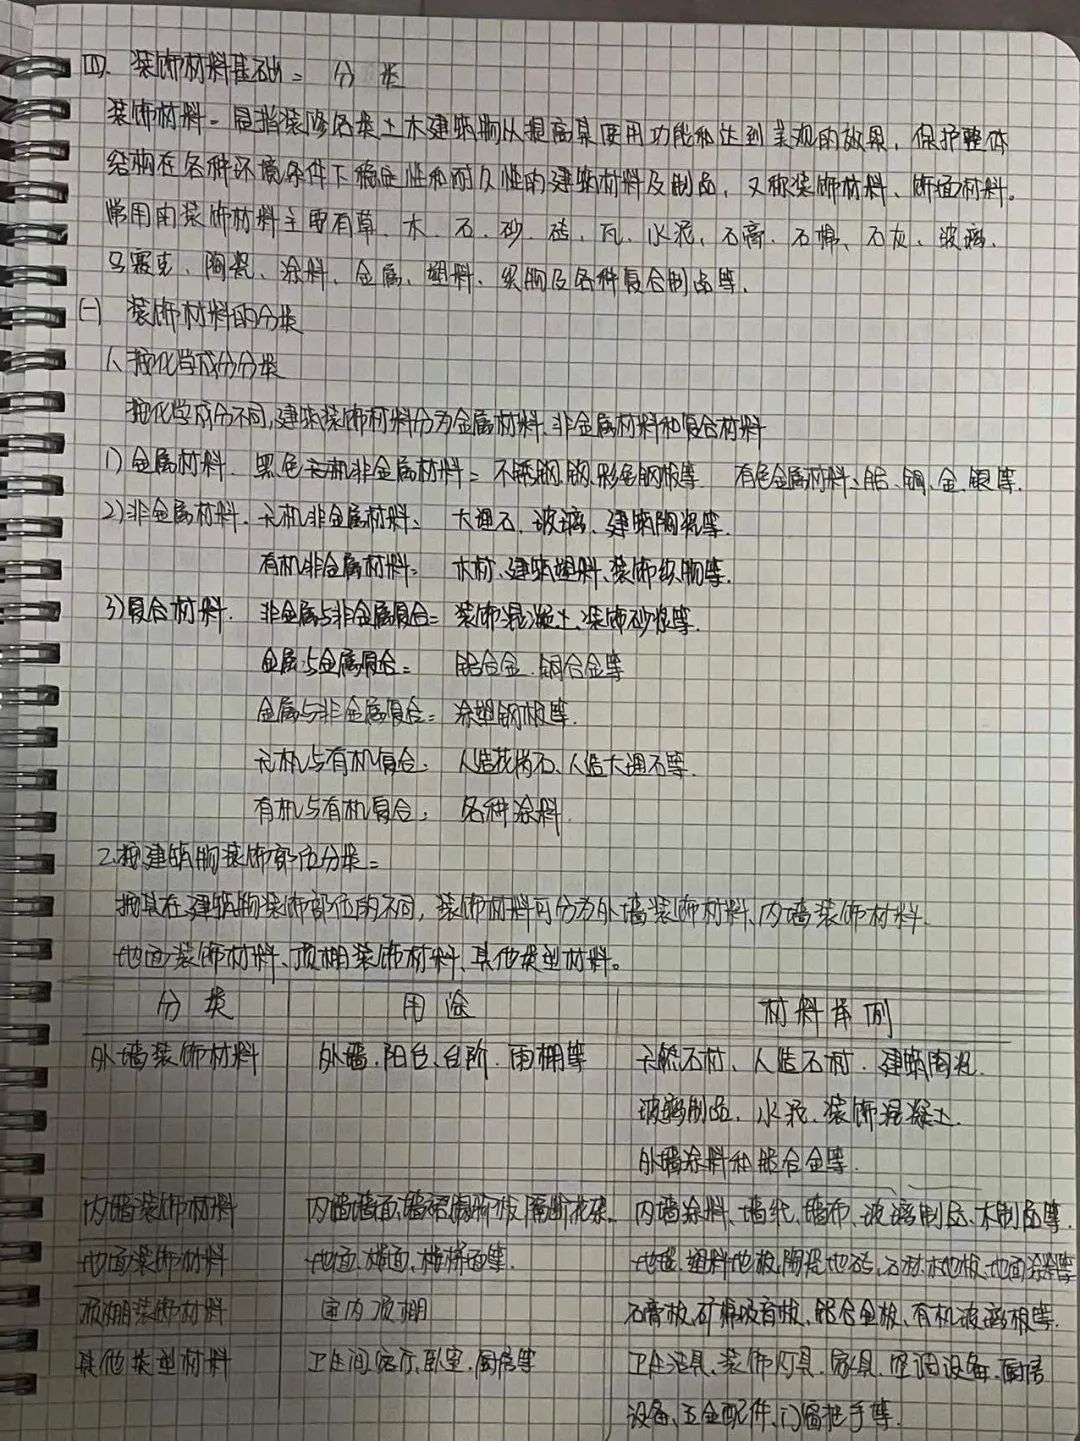 四、装饰材料基础: 分类
装饰材料-是指装修各类土木建筑物以提高其使用功能和达到美观的效果，保护整体
结构在各种环境条件下稳定性和耐久性的建筑材料及制品，又称装饰材料、饰面材料。
常用的装饰材料主要有草、木、石、砂、砖、瓦、水泥、石膏、石棉、石灰、玻璃、
马赛克、陶瓷、涂料、金属、塑料、织物及各种复合制品等。
(一) 装饰材料的分类
1、按化学成分分类
按化学成分不同,建筑装饰材料分为金属材料、非金属材料和复合材料
1) 金属材料. 黑色无机非金属材料: 不锈钢、钢、彩色钢板等. 有色金属材料:铝、铜、金、银等.
2)非金属材料. 无机非金属材料: 大理石、玻璃、建筑陶瓷等.
有机非金属材料: 木材、建筑塑料、装饰织物等.
3)复合材料. 非金属与非金属复合: 装饰混凝土、装饰砂浆等.
金属与金属复合: 铝合金、铜合金等
金属与非金属复合: 涂塑钢板等.
无机与有机复合: 人造花岗石、人造大理石等.
有机与有机复合: 各种涂料.
2.按建筑物装饰部位分类:
按其在建筑物装饰部位的不同，装饰材料可分为外墙装饰材料、内墙装饰材料、
地面装饰材料、顶棚装饰材料、其他类型材料。
分类 用途 材料举例
外墙装饰材料 外墙、阳台、台阶、雨棚等 天然石材、人造石材、建筑陶瓷、
玻璃制品、水泥、装饰混凝土、
外墙涂料和铝合金等.
内墙装饰材料 内墙墙面、墙裙、踢脚板、隔断、花架 内墙涂料、墙纸、墙布、玻璃制品、木制品等.
地面装饰材料 地面、楼面、楼梯面等. 地毯、塑料地板、陶瓷地砖、石材、木地板、地面涂料等
顶棚装饰材料 室内顶棚 石膏板、矿棉吸音板、铝合金板、有机玻璃板等.
其他类型材料 卫生间、客厅、卧室、厨房等 卫生洁具、装饰灯具、家具、空调设备、厨房
设备、五金配件、门窗把手等.